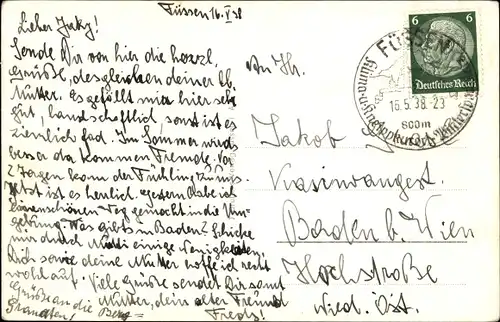 Füssen 16.V.38
Lieber Jaky!
Sende Dir von hier die herzl.
Grüße, desgleichen deiner lb.
Mutter. Es gefällt mir hier sehr
gut, landschaftlich sonst ist es
ziemlich fad. Im Sommer wirds
besser da kommen Fremde. Vor
2 Tagen kam der Frühling zu uns.
Jetzt ist es herrlich. gestern habe ich
schönen Weg gemacht in die Um-
gebung. Was gibts in Baden? Schicke
mir durch Mutti einige Wenigkeiten.
Dich sowie deine Mutter hoffe ich recht
wohlauf. Viele Grüße sendet Dir samt
Mutter, dein alter Freund
Fredy!
Grüße an die Berg-
An Hr.
Jakob
Baden b. Wien
Hochstraße
Nied. Öst.
FÜSSEN
16.5.38.23
800m
6 6
Deutsches Reich